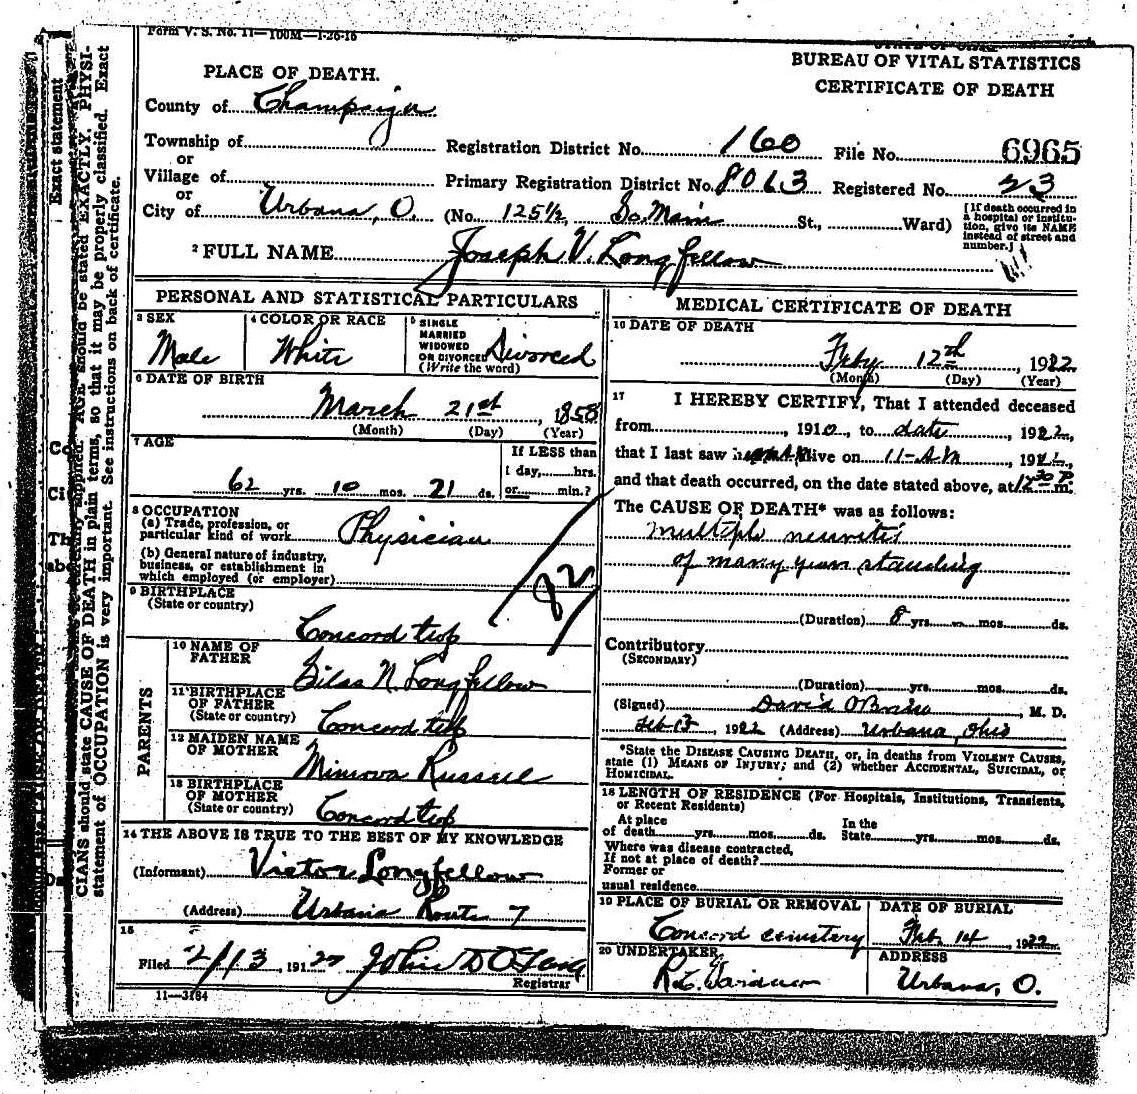 Form V. S. No. 11—100M—1-26-16
STATE OF OHIO
BUREAU OF VITAL STATISTICS
CERTIFICATE OF DEATH
PLACE OF DEATH.
County of Champaign
Township of
or
Village of
or
City of Urbana, O. (No. 125½, So. Main St., Ward)
Registration District No. 160 File No. 6965
Primary Registration District No. 8013 Registered No. 23
[If death occurred in a hospital or institution, give its NAME instead of street and number.]
2 FULL NAME Joseph V. Longfellow
PERSONAL AND STATISTICAL PARTICULARS
3 SEX
Male
4 COLOR OR RACE
White
5 SINGLE
MARRIED
WIDOWED
OR DIVORCED
(Write the word)
Divorced
6 DATE OF BIRTH
March 21st, 1858
(Month) (Day) (Year)
7 AGE
62 yrs. 10 mos. 21 ds.
If LESS than
1 day, hrs.
or min.?
8 OCCUPATION
(a) Trade, profession, or
particular kind of work Physician
(b) General nature of industry,
business, or establishment in
which employed (or employer)
82
9 BIRTHPLACE
(State or country)
Concord twp
PARENTS
10 NAME OF
FATHER
Silas N. Longfellow
11 BIRTHPLACE
OF FATHER
(State or country)
Concord twp
12 MAIDEN NAME
OF MOTHER
Minerva Russell
13 BIRTHPLACE
OF MOTHER
(State or country)
Concord twp
14 THE ABOVE IS TRUE TO THE BEST OF MY KNOWLEDGE
(Informant) Victor Longfellow
(Address) Urbana Route 7
15
Filed 2/13, 191
Registrar
11—3184
MEDICAL CERTIFICATE OF DEATH
16 DATE OF DEATH
Feby 12th, 19
(Month) (Day) (Year)
17 I HEREBY CERTIFY, That I attended deceased
from 1910, to date, 19
that I last saw h alive on 11-AM, 19
and that death occurred, on the date stated above, at 12 30 P. m.
The CAUSE OF DEATH* was as follows:
Multiple neuritis
of many years standing
(Duration) 8 yrs. mos. ds.
Contributory
(SECONDARY)
(Duration) yrs. mos. ds.
(Signed) David O'Brien, M. D.
Feb 13, 19 (Address) Urbana, Ohio
*State the DISEASE CAUSING DEATH, or, in deaths from VIOLENT CAUSES,
state (1) MEANS OF INJURY; and (2) whether ACCIDENTAL, SUICIDAL, or
HOMICIDAL.
18 LENGTH OF RESIDENCE (For Hospitals, Institutions, Transients,
or Recent Residents)
At place
of death yrs. mos. ds.
In the
State yrs. mos. ds.
Where was disease contracted,
If not at place of death?
Former or
usual residence
19 PLACE OF BURIAL OR REMOVAL
Concord cemetery
DATE OF BURIAL
Feb. 14, 19
20 UNDERTAKER
ADDRESS
Urbana, O.
Exact statement
CIANS should state CAUSE OF DEATH in plain terms, so that it may be properly classified. Exact
statement of OCCUPATION is very important. See instructions on back of certificate.
AGE should be stated EXACTLY. PHYSI-